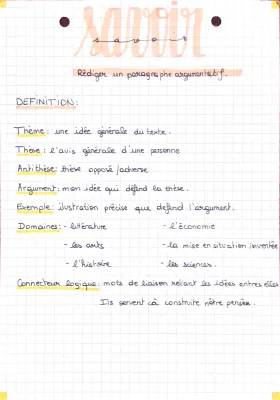 savoir
savoir
Rédiger un paragraphe argumentatif.
DEFINITION:
Thème: une idée générale du texte.
Thèse: l'avis générale d'une personne
Antithèse: thèse opposé/adverse
Argument: mon idée qui défend la thèse.
Exemple: ilustration précise que defend l'argument.
Domaines: - littérature - l'économie
- les arts - la mise en situation inventée
- l'histoire - les sciences.
Connecteur logique: mots de liaison reliant les idées entres elles
Ils servent cà construite nôtre pensée.